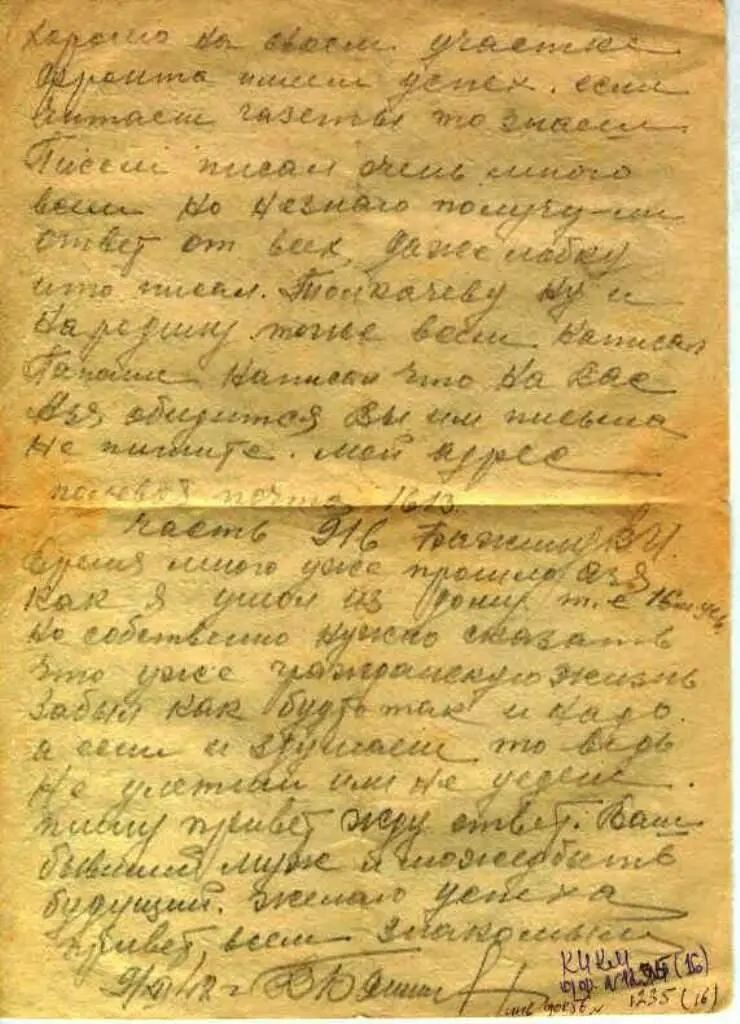 хорошо на своем участке
фронта имели успех. если
читаеш газеты то знаеш
Писем писал очень много
всем но незнаю получу-ли
ответ от всех, даже
что писал. Толкачеву Ну и
Каредину тоже всем написал
Папаше написал что на вас
Ася обидится Вы им письма
не пишите. мой адрес
полевая почта 1613
часть 916 Бажину В И.
Время много уже прошло Ася
как я ушол из дому т.е 16
но собственно нужно сказать
что уже гражданскую жизнь
забыл как будто так и надо.
а если и здумаеш то ведь
не улетиш или не уедеш.
пишу привет жду ответ. Ваш
бывший муж и можебыть
будущий. желаю успеха
привет всем знакомым
42 г
ККМ
(16)
1235 (16)